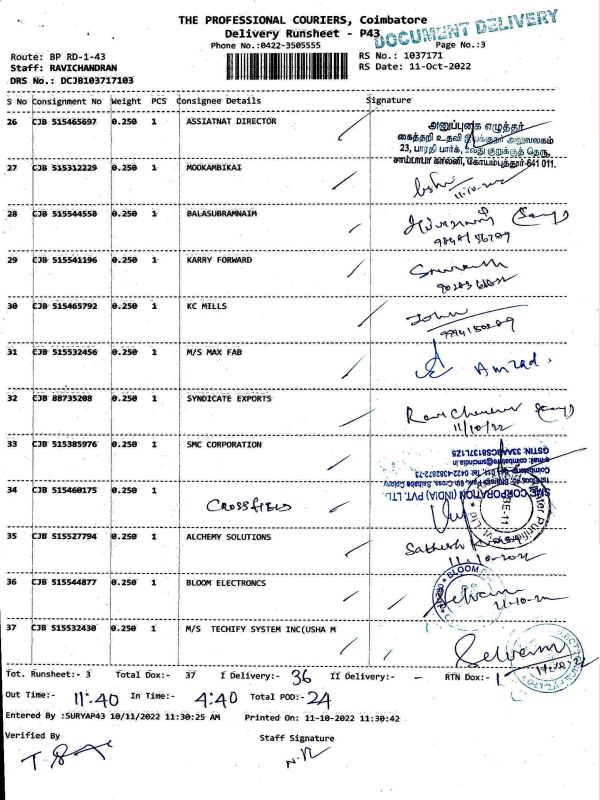 THE PROFESSIONAL COURIERS, Coimbatore
DOCUMENT DELIVERY
Delivery Runsheet - P43
Phone No.:0422-3505555
Page No.:3
Route: BP RD-1-43
RS No.: 1037171
Staff: RAVICHANDRAN
RS Date: 11-Oct-2022
DRS No.: DCJB103717103
S No Consignment No Weight PCS Consignee Details Signature
26 CJB 515465697 0.250 1 ASSIATNAT DIRECTOR
அனுப்புகை எழுத்தர்
கைத்தறி உதவி இயக்குநர் அலுவலகம்
23, பாரதி பார்க், 2வது குறுக்குத் தெரு,
சாய்பாபா காலனி, கோயம்புத்தூர்-641 011.
27 CJB 515312229 0.250 1 MOOKAMBIKAI
11-10-22
28 CJB 515544558 0.250 1 BALASUBRAMNAIM
29 CJB 515541196 0.250 1 KARRY FORWARD
30 CJB 515465792 0.250 1 KC MILLS
John
31 CJB 515532456 0.250 1 M/S MAX FAB
Amzad.
32 CJB 88735208 0.250 1 SYNDICATE EXPORTS
11/10/22
33 CJB 515385976 0.250 1 SMC CORPORATION
SMC CORPORATION (INDIA) PVT. LTD.
GSTIN: 33AABCS8137L1Z5
34 CJB 515460175 0.250 1 CROSSFIELD
35 CJB 515527794 0.250 1 ALCHEMY SOLUTIONS
Sathish
11-10-2022
36 CJB 515544877 0.250 1 BLOOM ELECTRONCS
BLOOM
Selvam
11-10-22
37 CJB 515532430 0.250 1 M/S TECHIFY SYSTEM INC(USHA M
Selvam
Tot. Runsheet:- 3 Total Dox:- 37 I Delivery:- 36 II Delivery:- - RTN Dox:- 1
Out Time:- 11:40 In Time:- 4:40 Total POD:- 24
Entered By :SURYAP43 10/11/2022 11:30:25 AM Printed On: 11-10-2022 11:30:42
Verified By
Staff Signature